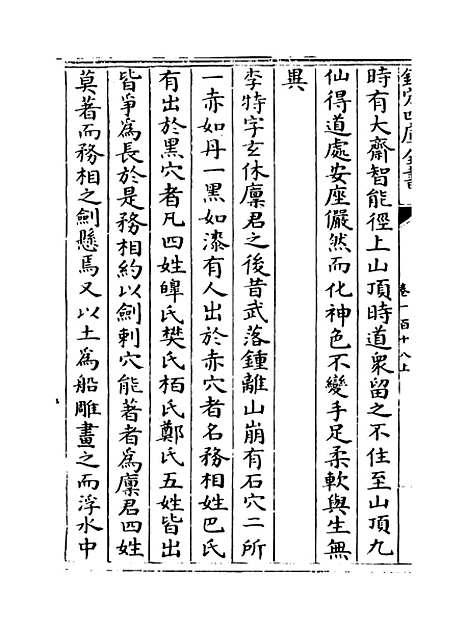 欽定四庫全書
卷一百十八上
時有大齋智能徑上山頂時道衆留之不住至山頂九
仙得道處安座儼然而化神色不變手足柔軟與生無
異
李特字玄休廪君之後昔武落鍾離山崩有石穴二所
一赤如丹一黑如漆有人出於赤穴者名務相姓巴氏
有出於黑穴者凡四姓皥氏樊氏栢氏鄭氏五姓皆出
皆爭為長於是務相約以劍刺穴能著者為廪君四姓
莫著而務相之劍懸焉又以土為船雕畫之而浮水中